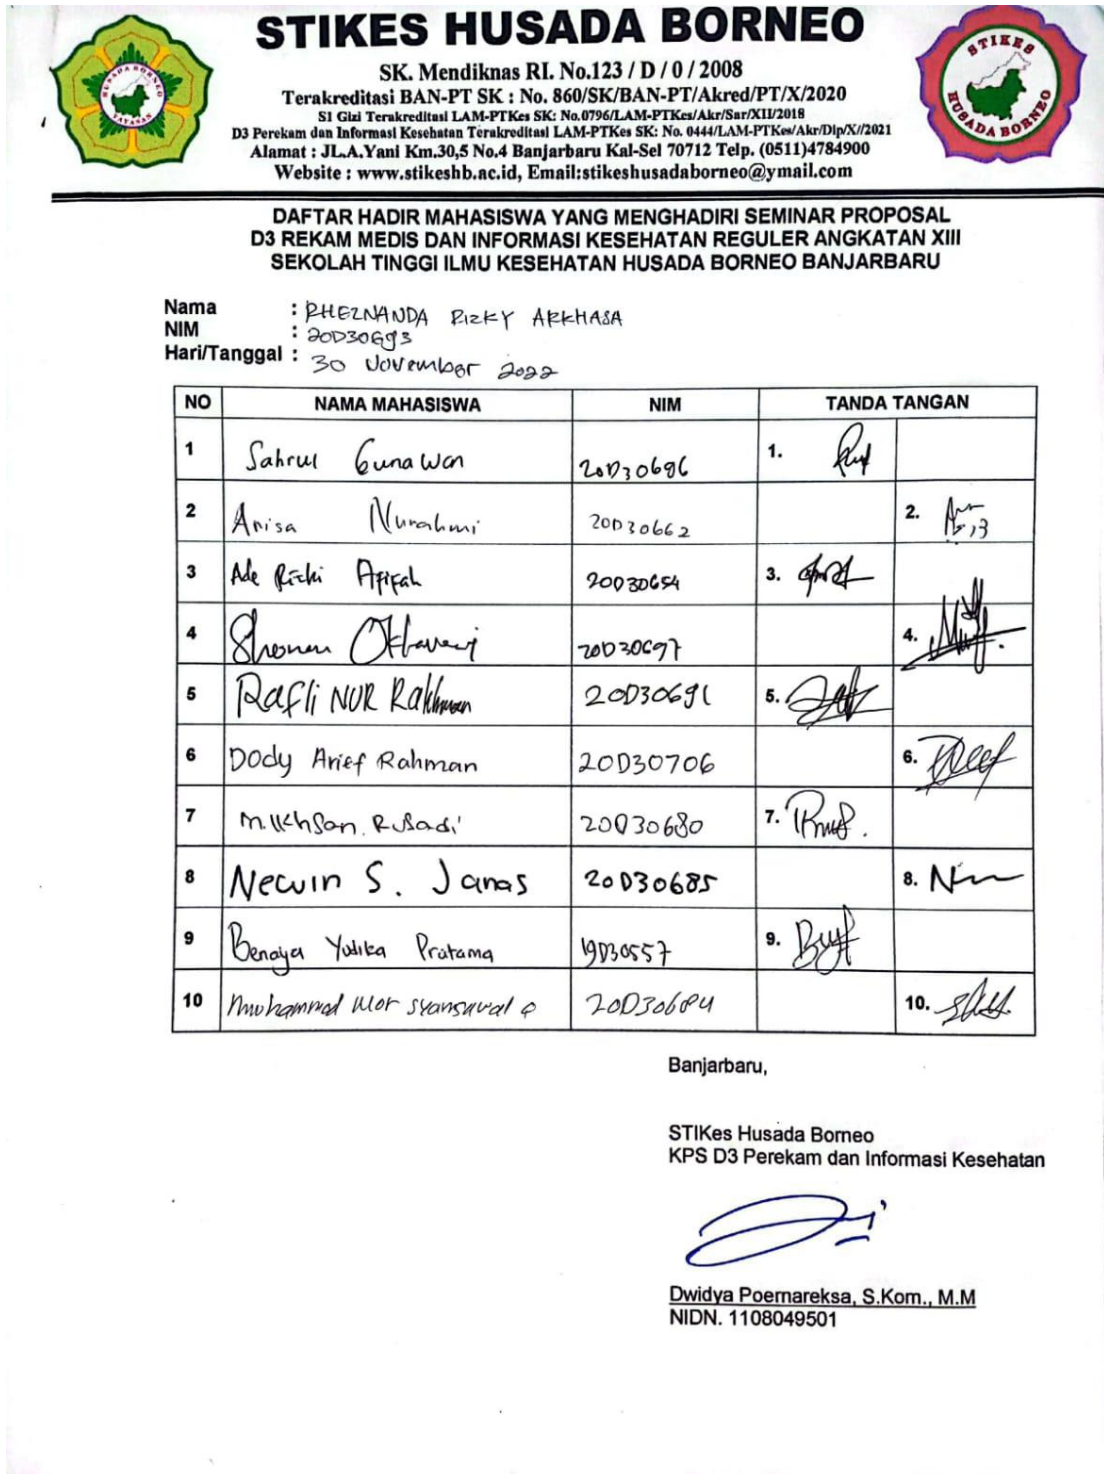 STIKES HUSADA BORNEO
SK. Mendiknas RI. No.123 / D / 0 / 2008
Terakreditasi BAN-PT SK : No. 860/SK/BAN-PT/Akred/PT/X/2020
S1 Gizi Terakreditasi LAM-PTKes SK: No.0796/LAM-PTKes/Akr/Sar/XII/2018
D3 Perekam dan Informasi Kesehatan Terakreditasi LAM-PTKes SK: No. 0444/LAM-PTKes/Akr/Dip/X//2021
Alamat : JL.A.Yani Km.30,5 No.4 Banjarbaru Kal-Sel 70712 Telp. (0511)4784900
Website : www.stikeshb.ac.id, Email:stikeshusadaborneo@ymail.com
HUSADA BORNEO
YAYASAN
STIKES
HUSADA BORNEO
DAFTAR HADIR MAHASISWA YANG MENGHADIRI SEMINAR PROPOSAL
D3 REKAM MEDIS DAN INFORMASI KESEHATAN REGULER ANGKATAN XIII
SEKOLAH TINGGI ILMU KESEHATAN HUSADA BORNEO BANJARBARU
Nama : RHEZNANDA RIZKY ARKHASA
NIM : 20D30693
Hari/Tanggal : 30 November 2022
NO NAMA MAHASISWA NIM TANDA TANGAN
1 Sahrul Gunawan 20D30696 1.
2 Anisa Nurahmi 20D30662 2.
3 Ade Rizki Afifah 20D30654 3.
4 20D30697 4.
5 Rafli NUR Rakhman 20D30691 5.
6 Dody Arief Rahman 20D30706 6.
7 M. Ikhsan. Rusadi 20D30680 7.
8 Newin S. Janas 20D30685 8.
9 Benaya Yudika Pratama 19D30557 9.
10 Muhammad 20D30684 10.
Banjarbaru,
STIKes Husada Borneo
KPS D3 Perekam dan Informasi Kesehatan
Dwidya Poernareksa, S.Kom., M.M
NIDN. 1108049501